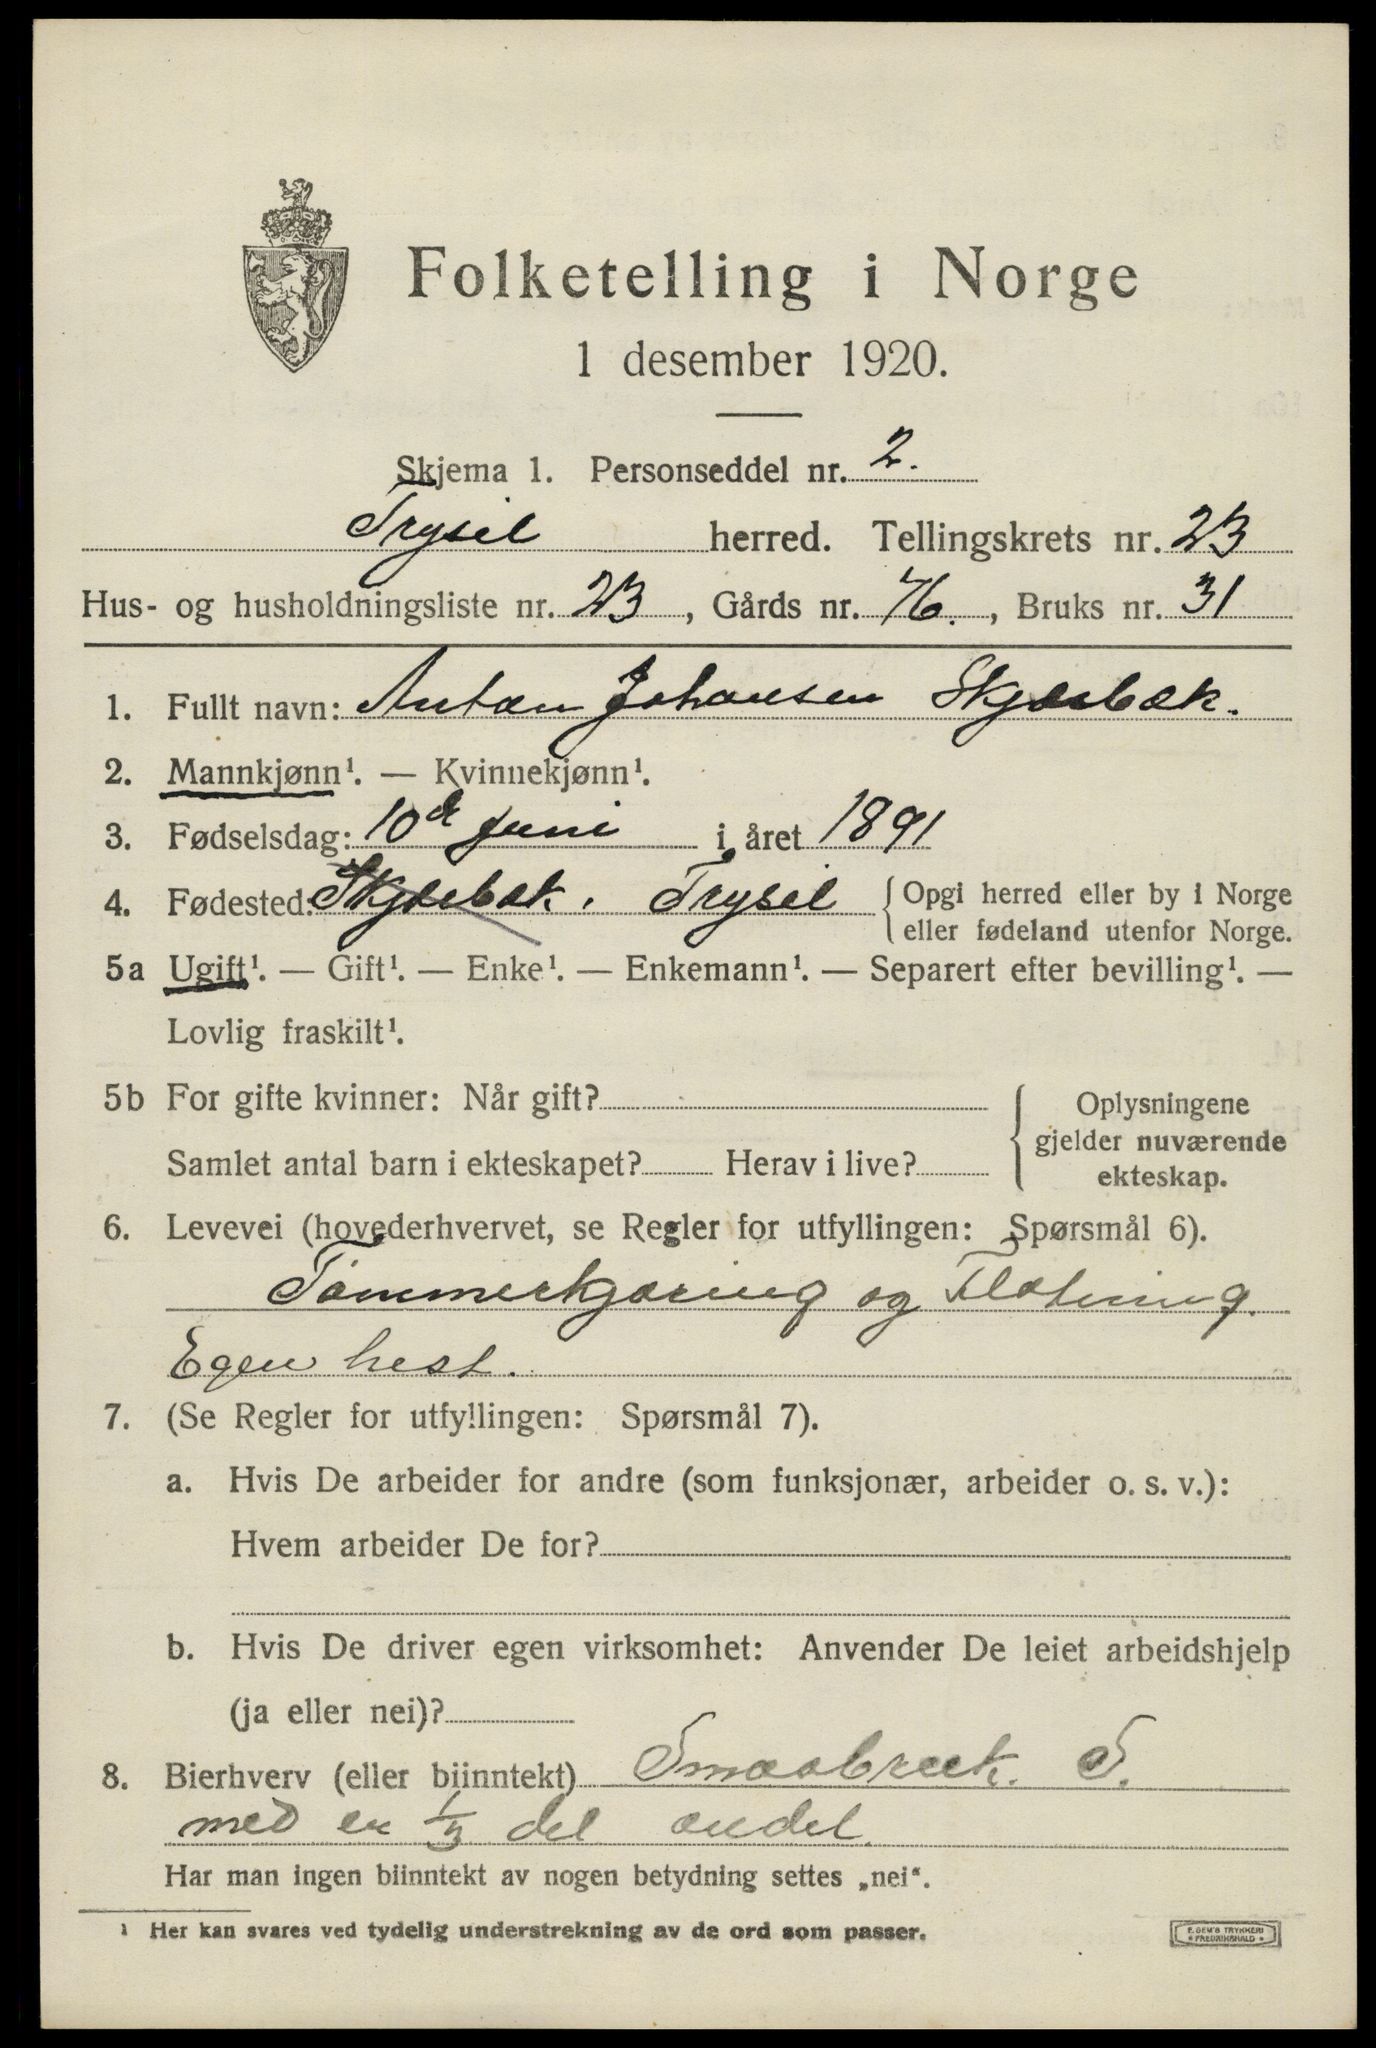 Folketelling i Norge
1 desember 1920.
Skjema 1. Personseddel nr. 2.
Trysil herred. Tellingskrets nr. 23
Hus- og husholdningsliste nr. 23, Gårds nr. 76., Bruks nr. 31
1. Fullt navn: Anton Johansen Skjærbæk.
2. Mannkjønn¹. — Kvinnekjønn¹.
3. Fødselsdag: 10de juni i året 1891
4. Fødested: Skjærbæk. Trysil { Opgi herred eller by i Norge
eller fødeland utenfor Norge.
5a Ugift¹. — Gift¹. — Enke¹. — Enkemann¹. — Separert efter bevilling¹. —
Lovlig fraskilt¹.
5b For gifte kvinner: Når gift?
Samlet antal barn i ekteskapet? Herav i live?
{ Oplysningene
gjelder nuværende
ekteskap.
6. Levevei (hovederhvervet, se Regler for utfyllingen: Spørsmål 6).
Tømmerkjøring og Fløtning.
Egen hest.
7. (Se Regler for utfyllingen: Spørsmål 7).
a. Hvis De arbeider for andre (som funksjonær, arbeider o. s. v.):
Hvem arbeider De for?
b. Hvis De driver egen virksomhet: Anvender De leiet arbeidshjelp
(ja eller nei)?
8. Bierhverv (eller biinntekt) Smaabruk. S.
med en 1/3 del andel.
Har man ingen biinntekt av nogen betydning settes „nei“.
¹ Her kan svares ved tydelig understrekning av de ord som passer.
E. SEM'S TRYKKERI
FREDRIKSHALD